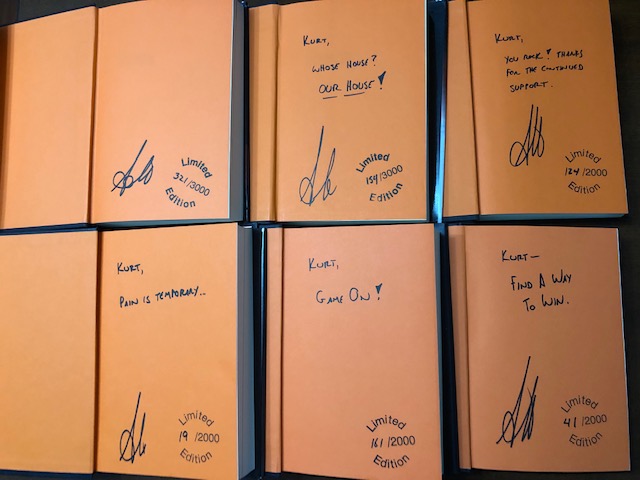 Limited
321/3000
Edition
KURT,
WHOSE HOUSE?
OUR HOUSE!
Limited
154/3000
Edition
KURT,
YOU ROCK! THANKS
FOR THE CONTINUED
SUPPORT.
Limited
124/2000
Edition
KURT,
PAIN IS TEMPORARY..
Limited
19/2000
Edition
KURT,
GAME ON!
Limited
161/2000
Edition
KURT—
FIND A WAY
TO WIN.
Limited
41/2000
Edition